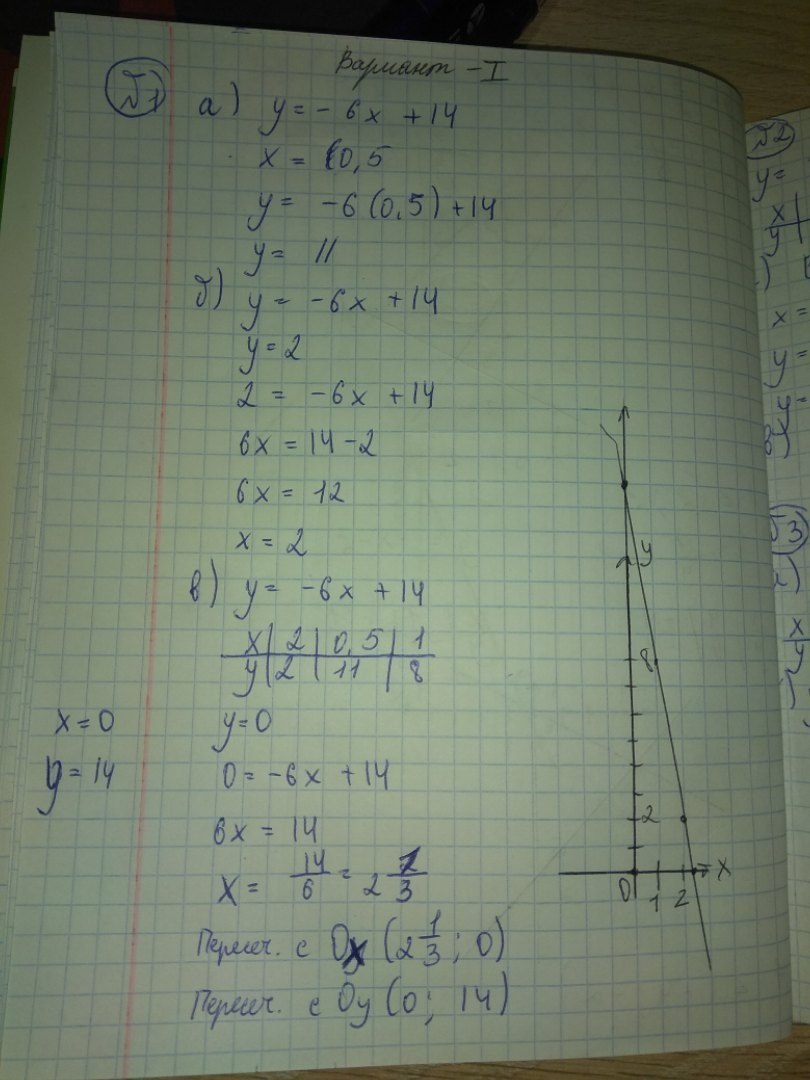 Вариант - I
№1 а) y = - 6x + 14
x = 0,5
y = -6(0,5) + 14
y = 11
б) y = -6x + 14
y = 2
2 = -6x + 14
6x = 14 - 2
6x = 12
x = 2
в) y = -6x + 14
x | 2 | 0,5 | 1
y | 2 | 11 | 8
x = 0 y = 0
y = 14 0 = -6x + 14
6x = 14
x = 14/6 = 2 1/3
Пересеч. с Ox (2 1/3; 0)
Пересеч. с Oy (0; 14)
y
8
2
0 1 2 x
№2
y =
x
y
x =
y =
y =
№3
x
y